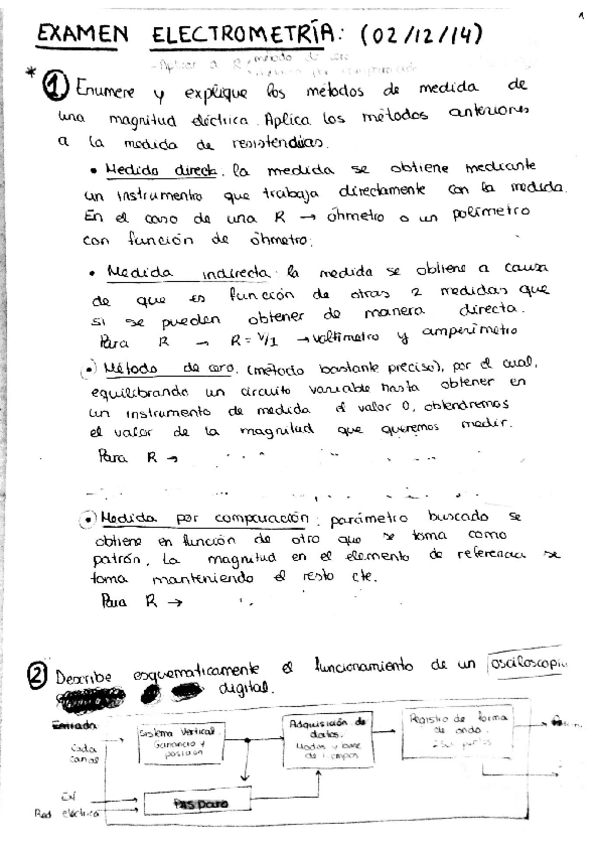 1
EXAMEN ELECTROMETRÍA: (02/12/14)
* ① Enumere y explique los métodos de medida de
una magnitud eléctrica. Aplica los métodos anteriores
a la medida de resistencias.
• Medida directa. la medida se obtiene mediante
un instrumento que trabaja directamente con la medida.
En el caso de una R → óhmetro o un polímetro
con función de óhmetro.
• Medida indirecta: la medida se obtiene a causa
de que es función de otras 2 medidas que
si se pueden obtener de manera directa.
Para R → R = V/I → voltímetro y amperímetro
• Método de cero. (método bastante preciso), por el cual,
equilibrando un circuito variable hasta obtener en
un instrumento de medida el valor 0, obtendremos
el valor de la magnitud que queremos medir.
Para R →
• Medida por comparación: parámetro buscado se
obtiene en función de otro que se toma como
patrón. La magnitud en el elemento de referencia se
toma manteniendo el resto cte.
Para R →
② Describe esquemáticamente el funcionamiento de un osciloscopio
digital.
Entrada
Cada
canal
Sistema Vertical.
Ganancia y
posición
Adquisición de
datos.
Modos y base
de tiempos
Registro de forma
de onda.
Ext
Red eléctrica
Disparo